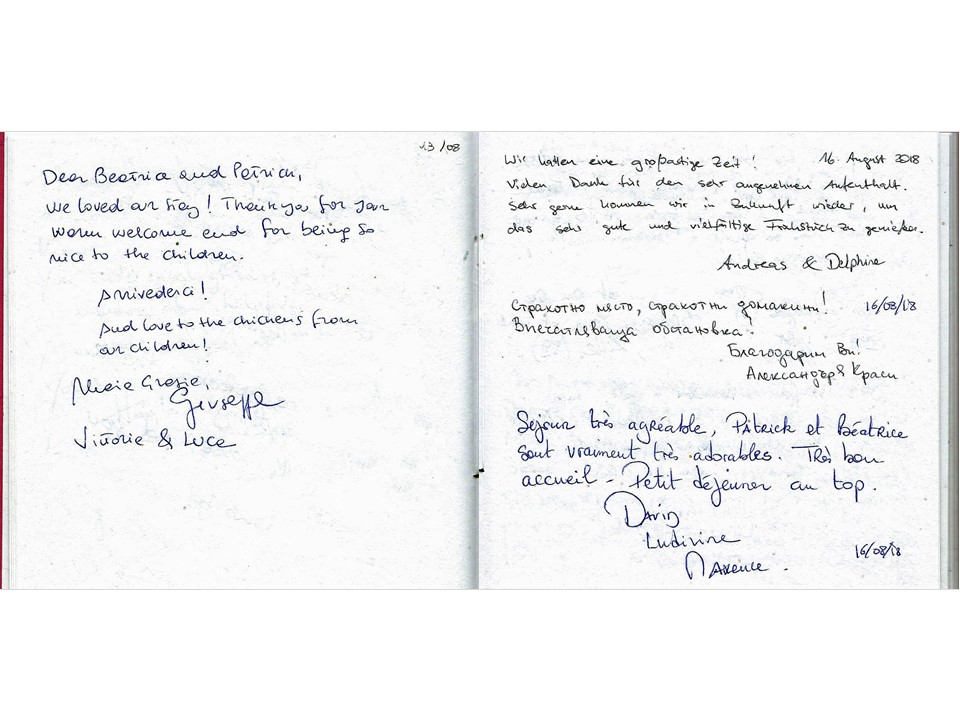 13/08
Dear Beatrice and Patrick,
we loved our stay! Thank you for your
warm welcome and for being so
nice to the children.
Arrivederci!
And love to the chickens from
our children!
Maria Grazia,
Giuseppe
Vittoria & Luca
Wir hatten eine großartige Zeit! 16. August 2018
Vielen Dank für den sehr angenehmen Aufenthalt.
Sehr gerne kommen wir in Zukunft wieder, um
das sehr gute und vielfältige Frühstück zu genießen.
Andreas & Delphine
Страхотно място, страхотни домакини! 16/08/18
Впечатляваща обстановка!
Благодарим Ви!
Александър и Краси
Séjour très agréable, Patrick et Béatrice
sont vraiment très adorables. Très bon
accueil - Petit déjeuner au top.
David
Ludivine
Maxence.
16/08/18